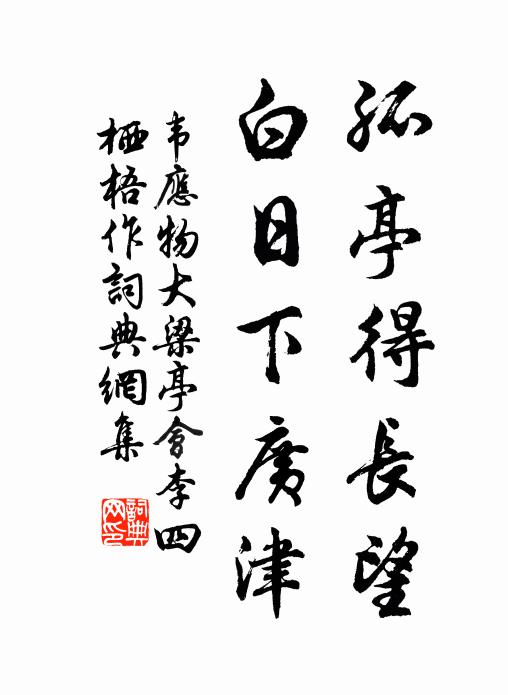 孤亭得長望
白日下廣津
韦應物大梁亭會李四
栖梧作詞典網集
詞典
网印